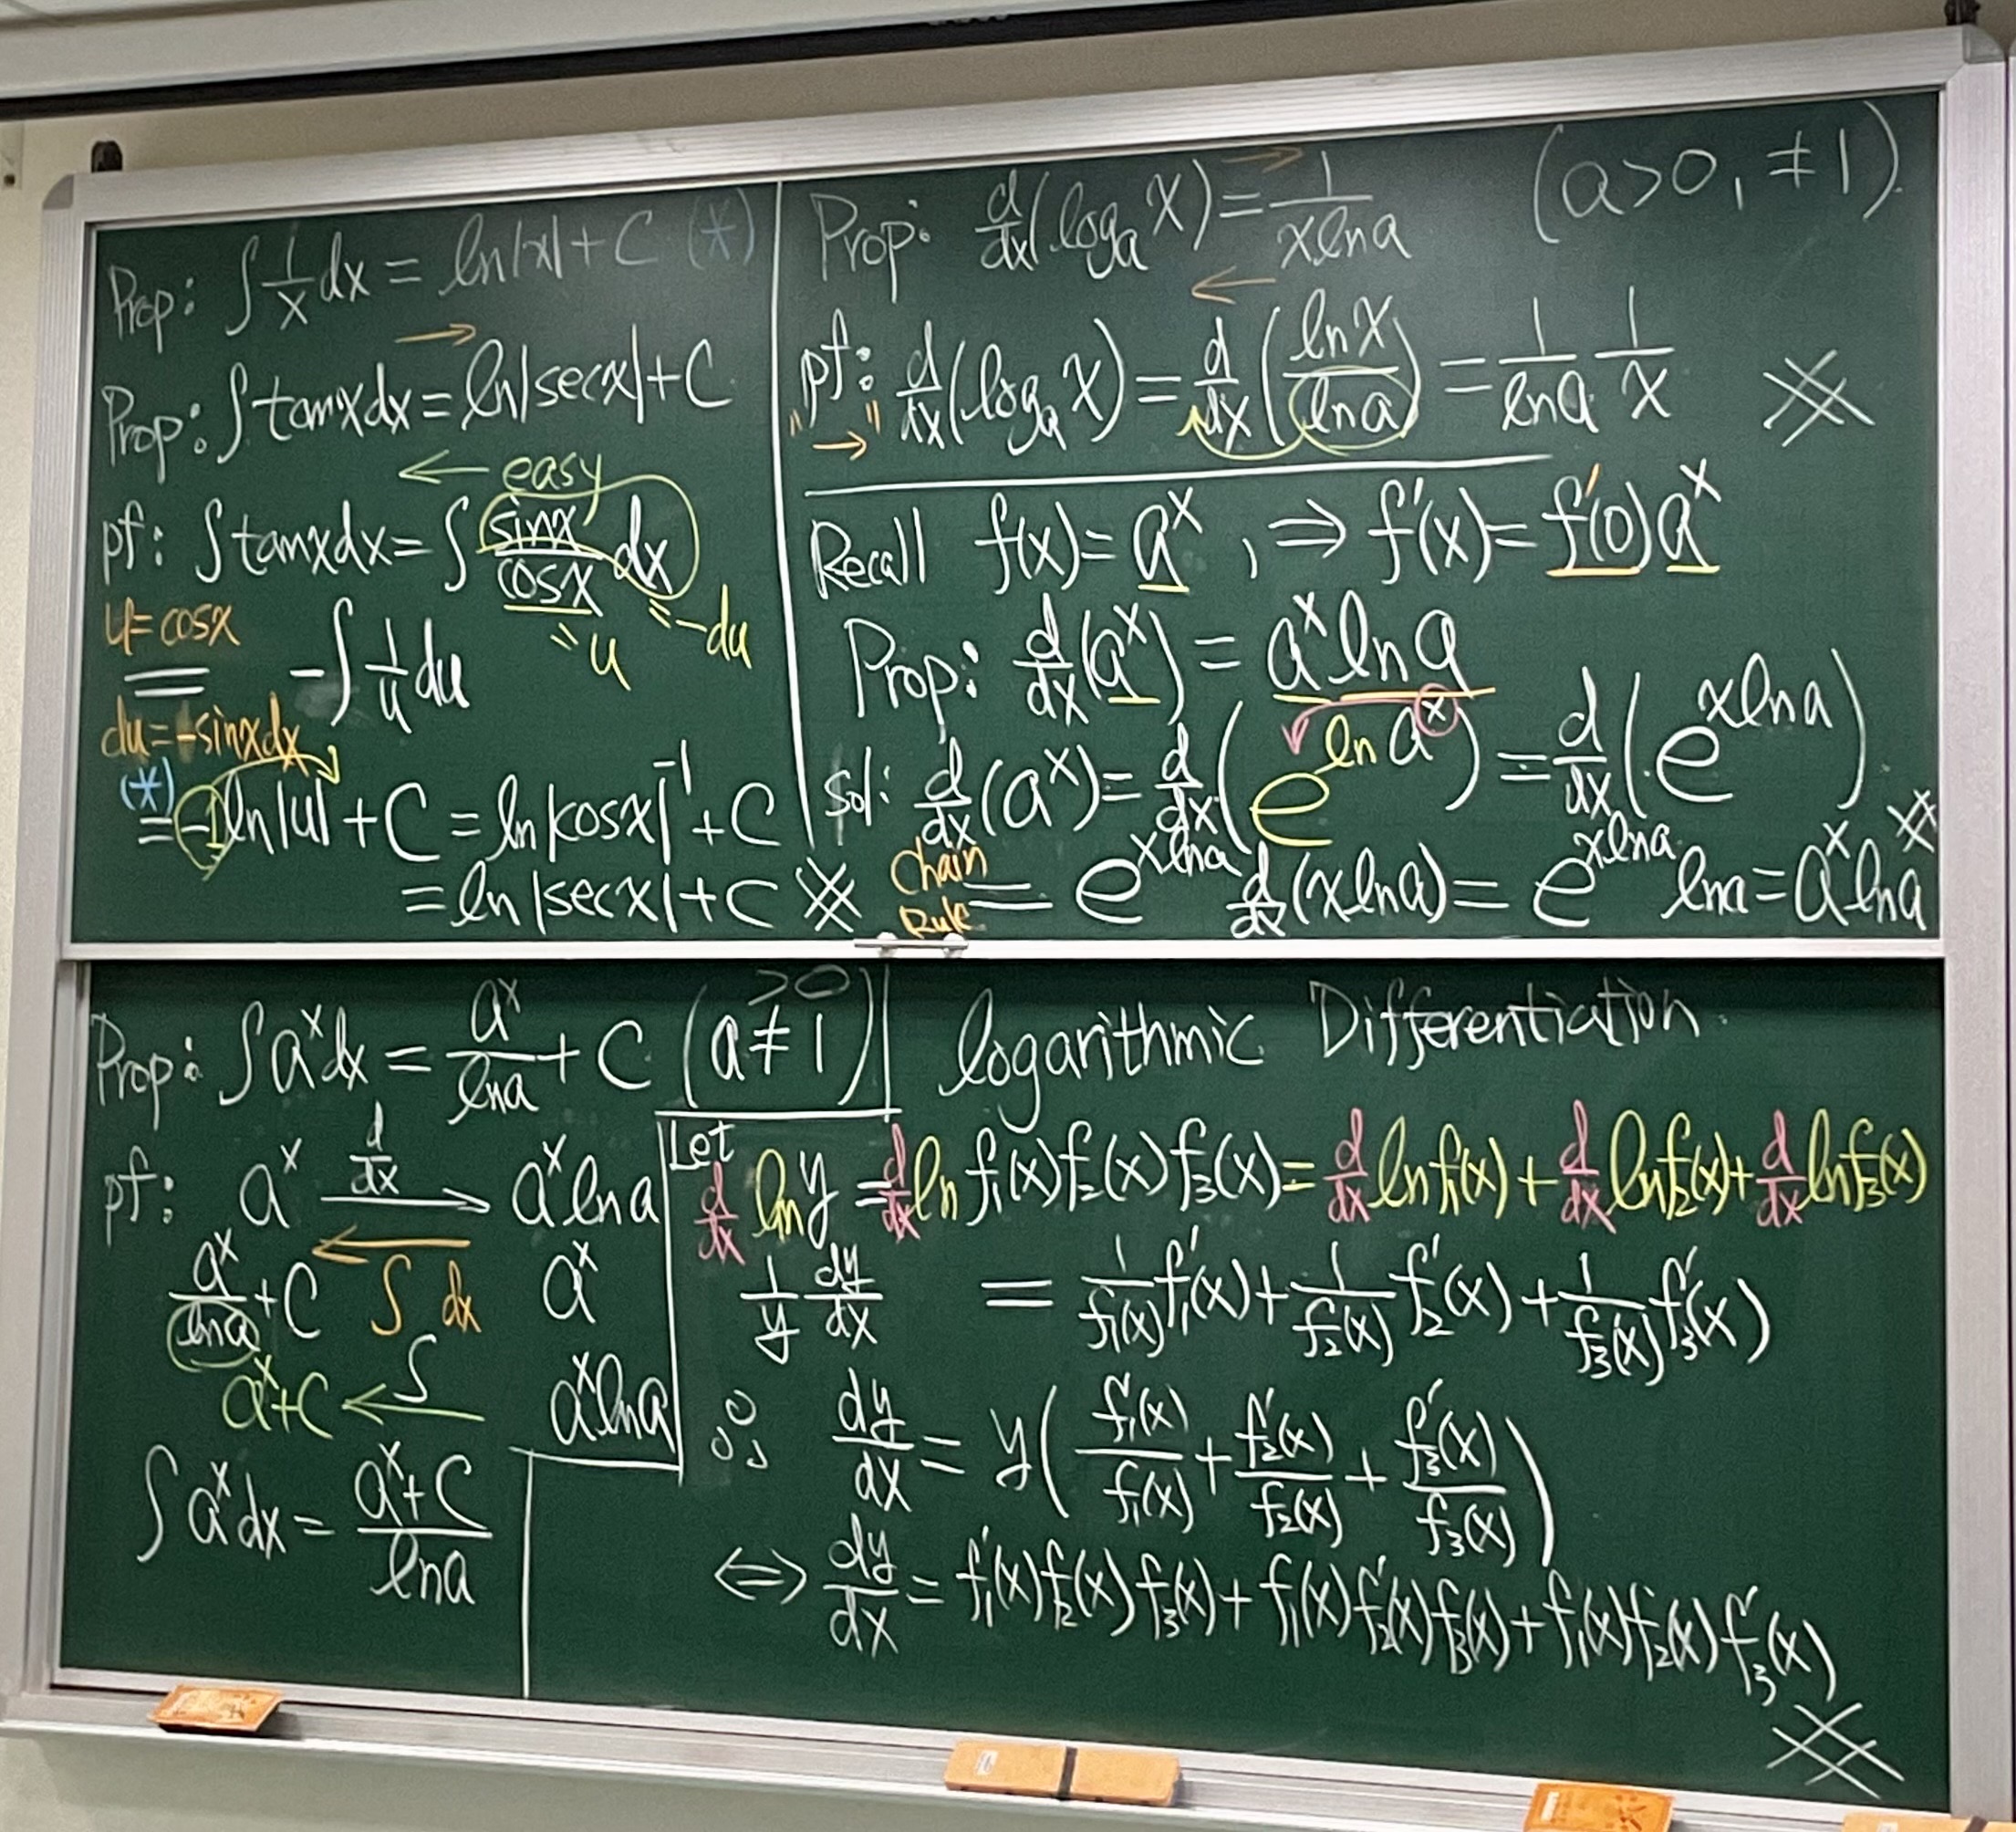 Prop: ∫ 1/x dx = ln|x| + C (*)
→
Prop: ∫ tanx dx = ln|secx| + C
← easy
pf: ∫ tanx dx = ∫ sinx/cosx dx
"u "-du
u = cosx
= -∫ 1/u du
du = -sinx dx
(*)
= -1 ln|u| + C = ln|cosx|⁻¹ + C
= ln|secx| + C ※
Prop: d/dx (logₐ x) = 1/(x ln a) (a>0, ≠1)
→
←
pf: d/dx (logₐ x) = d/dx (ln x / ln a) = 1/ln a 1/x ※
"→"
Recall f(x) = aˣ, ⇒ f'(x) = f'(0) aˣ
Prop: d/dx (aˣ) = aˣ ln a
sol: d/dx (aˣ) = d/dx (e^(ln aˣ)) = d/dx (e^(x ln a))
Chain Rule
= e^(x ln a) d/dx (x ln a) = e^(x ln a) ln a = aˣ ln a ※
Prop: ∫ aˣ dx = aˣ/ln a + C (a ≠ 1) >0
pf: aˣ d/dx → aˣ ln a
aˣ/ln a + C ← ∫ dx aˣ
aˣ + C ← ∫ aˣ ln a
∫ aˣ dx = (aˣ + C)/ln a
logarithmic Differentiation
Let
d/dx ln y = d/dx ln f₁(x) f₂(x) f₃(x) = d/dx ln f₁(x) + d/dx ln f₂(x) + d/dx ln f₃(x)
1/y dy/dx = 1/f₁(x) f₁'(x) + 1/f₂(x) f₂'(x) + 1/f₃(x) f₃'(x)
∴ dy/dx = y( f₁'(x)/f₁(x) + f₂'(x)/f₂(x) + f₃'(x)/f₃(x) )
⇔ dy/dx = f₁'(x) f₂(x) f₃(x) + f₁(x) f₂'(x) f₃(x) + f₁(x) f₂(x) f₃'(x)
※